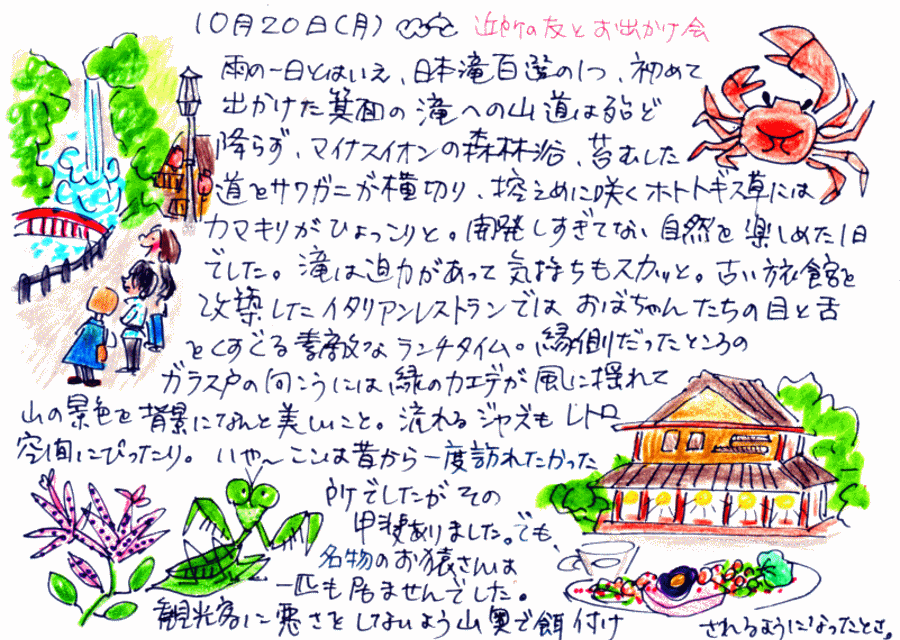 10月20日(月) 近所の友とお出かけ会
雨の一日とはいえ、日本滝百選の1つ、初めて
出かけた箕面の滝への山道は殆ど
降らず、マイナスイオンの森林浴、苔むした
道をサワガニが横切り、控えめに咲くホトトギス草には
カマキリがひょっこりと。開発しすぎてない自然を楽しめた1日
でした。滝は迫力があって気持ちもスカッと。古い旅館を
改築したイタリアンレストランではおばちゃんたちの目と舌
をくすぐる素敵なランチタイム。縁側だったところの
ガラス戸の向こうには緑のカエデが風に揺れて
山の景色を背景になんと美しいこと。流れるジャズもレトロ
空間にぴったり。いや〜ここは昔から一度訪れたかった
所でしたがその
甲斐ありました。でも、
名物のお猿さんは
一匹も居ませんでした。
観光客に悪さをしないよう山奥で餌付け
されるようになったとさ。